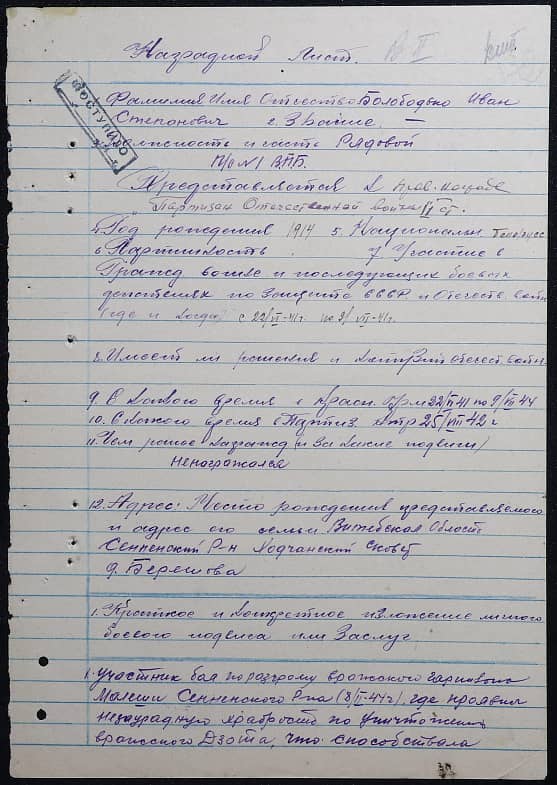 Наградной Лист.
ПОСТУПИЛО
Фамилия Имя Отчество Болободько Иван
Степанович 2. Звание —
и часть Рядовой
ВПБ.
Представляется к прав. награде
Партизан Отечественной войны II ст.
4. Год рождения 1914 5. Националн. Белорус
6. Партийность 7 Участие в
Гражд войне и последующих боевых
действиях по защите СССР и Отечеств. войн
(где и когда) с 22/VI-41г. по 9/VII-41г.
8. Имеет ли ранения и отечест. войн.
9. С какого время в Красн. 22/VI 41 по 9/VII 41
10. С какого время в Партиз. 25/VIII 42 г
11. Чем ранее награжд (и за какие подвиги)
Ненагражался
12. Адрес: Место рождения представляемого
и адрес его семьи Витебская Область
Сенненский Р-н Ходчанский Совет
д. Берешова
1. Краткое и конкретное изложение личного
боевого подвига или Заслуг
1. Участник боя по разгрому вражского гарнизона
Сенненского Р-на где проявил
незаурядную храбрость по уничтожению
вражского Дзота, что способствала